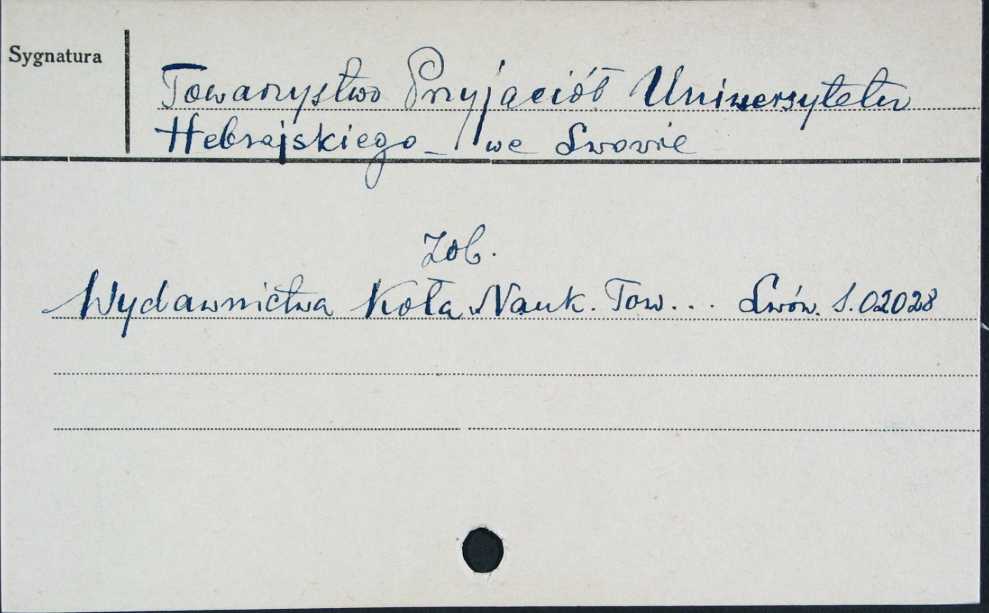 Sygnatura
Towarzystwo Przyjaciół Uniwersytetu
Hebrajskiego we Lwowie
Zob.
Wydawnictwa Koła Nauk. Tow... Lwów. S.02028